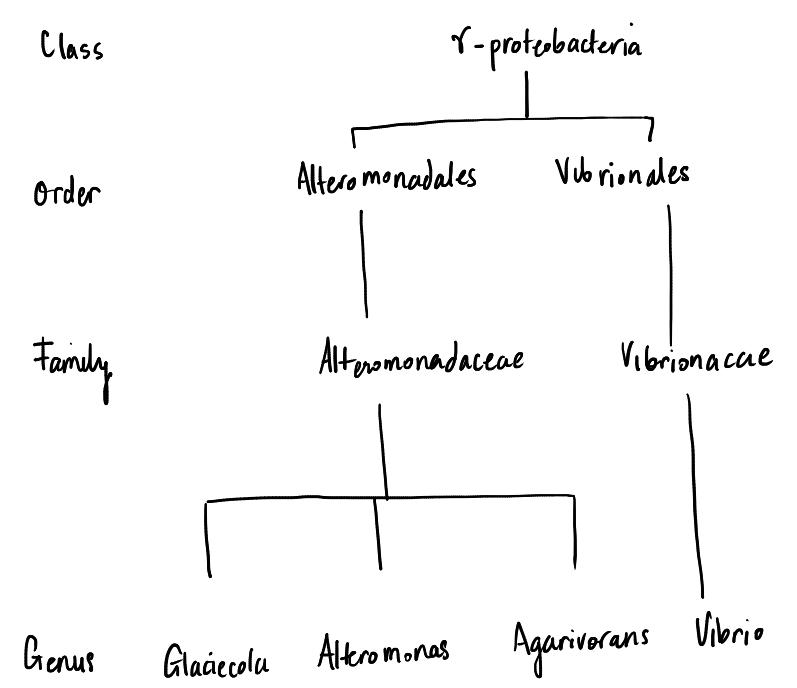 Class γ-proteobacteria
Order Alteromonadales Vibrionales
Family Alteromonadaceae Vibrionacae
Genus Glaciecola Alteromonas Agarivorans Vibrio